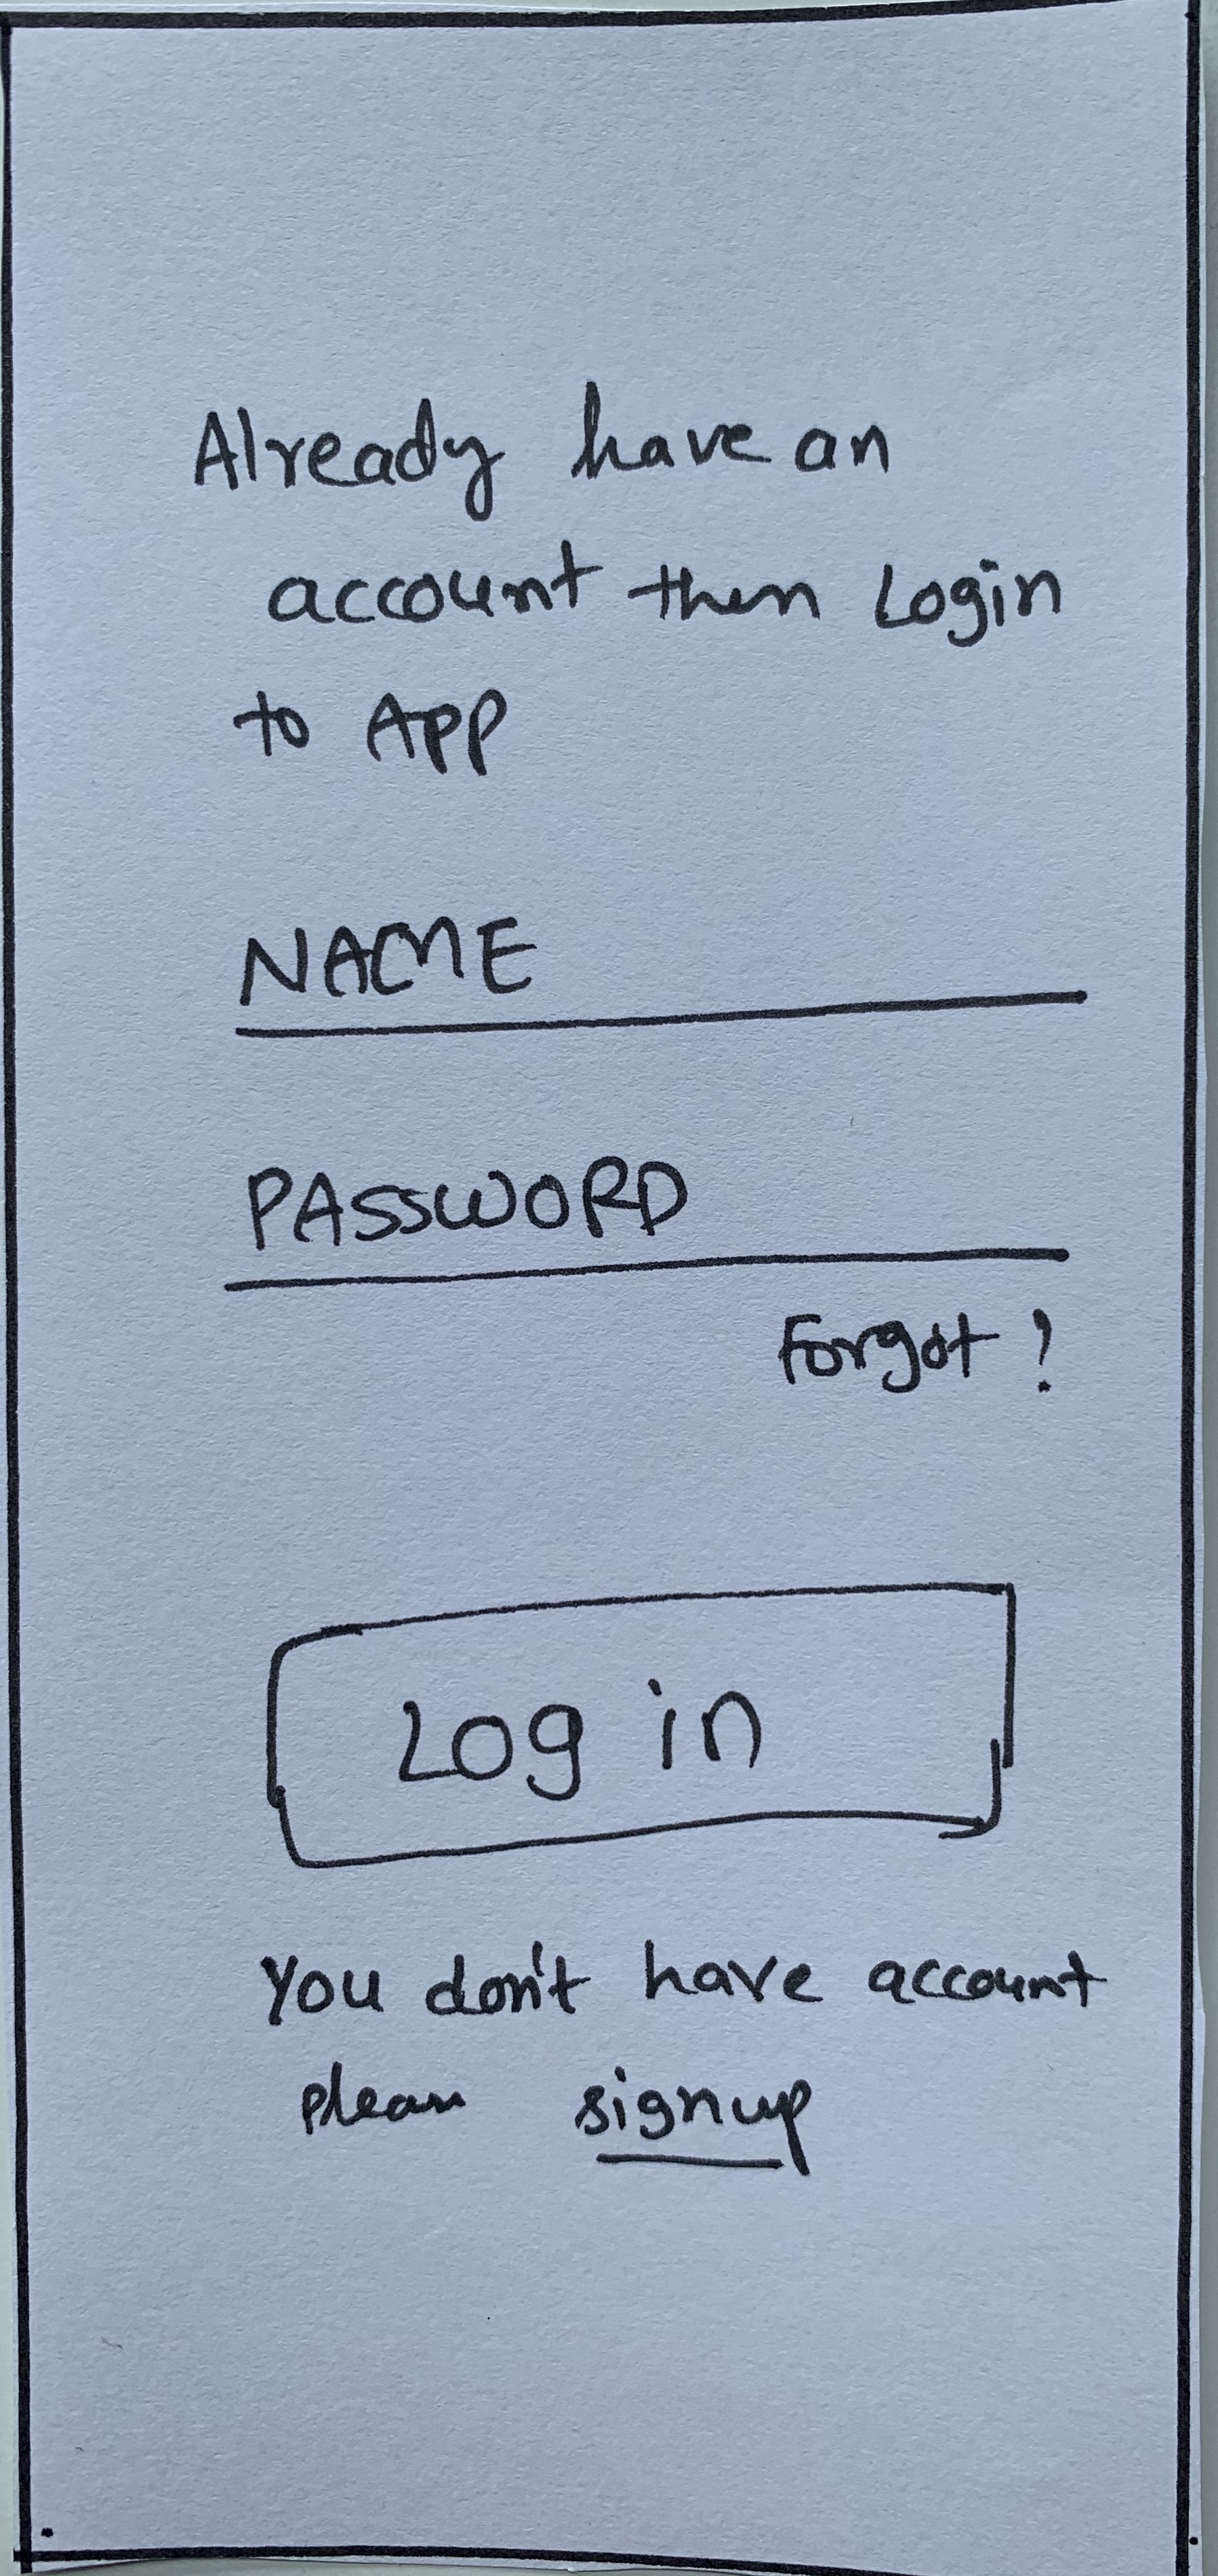 Already have an
account then Login
to App
NAME
PASSWORD
Forgot !
Log in
You don't have account
please signup